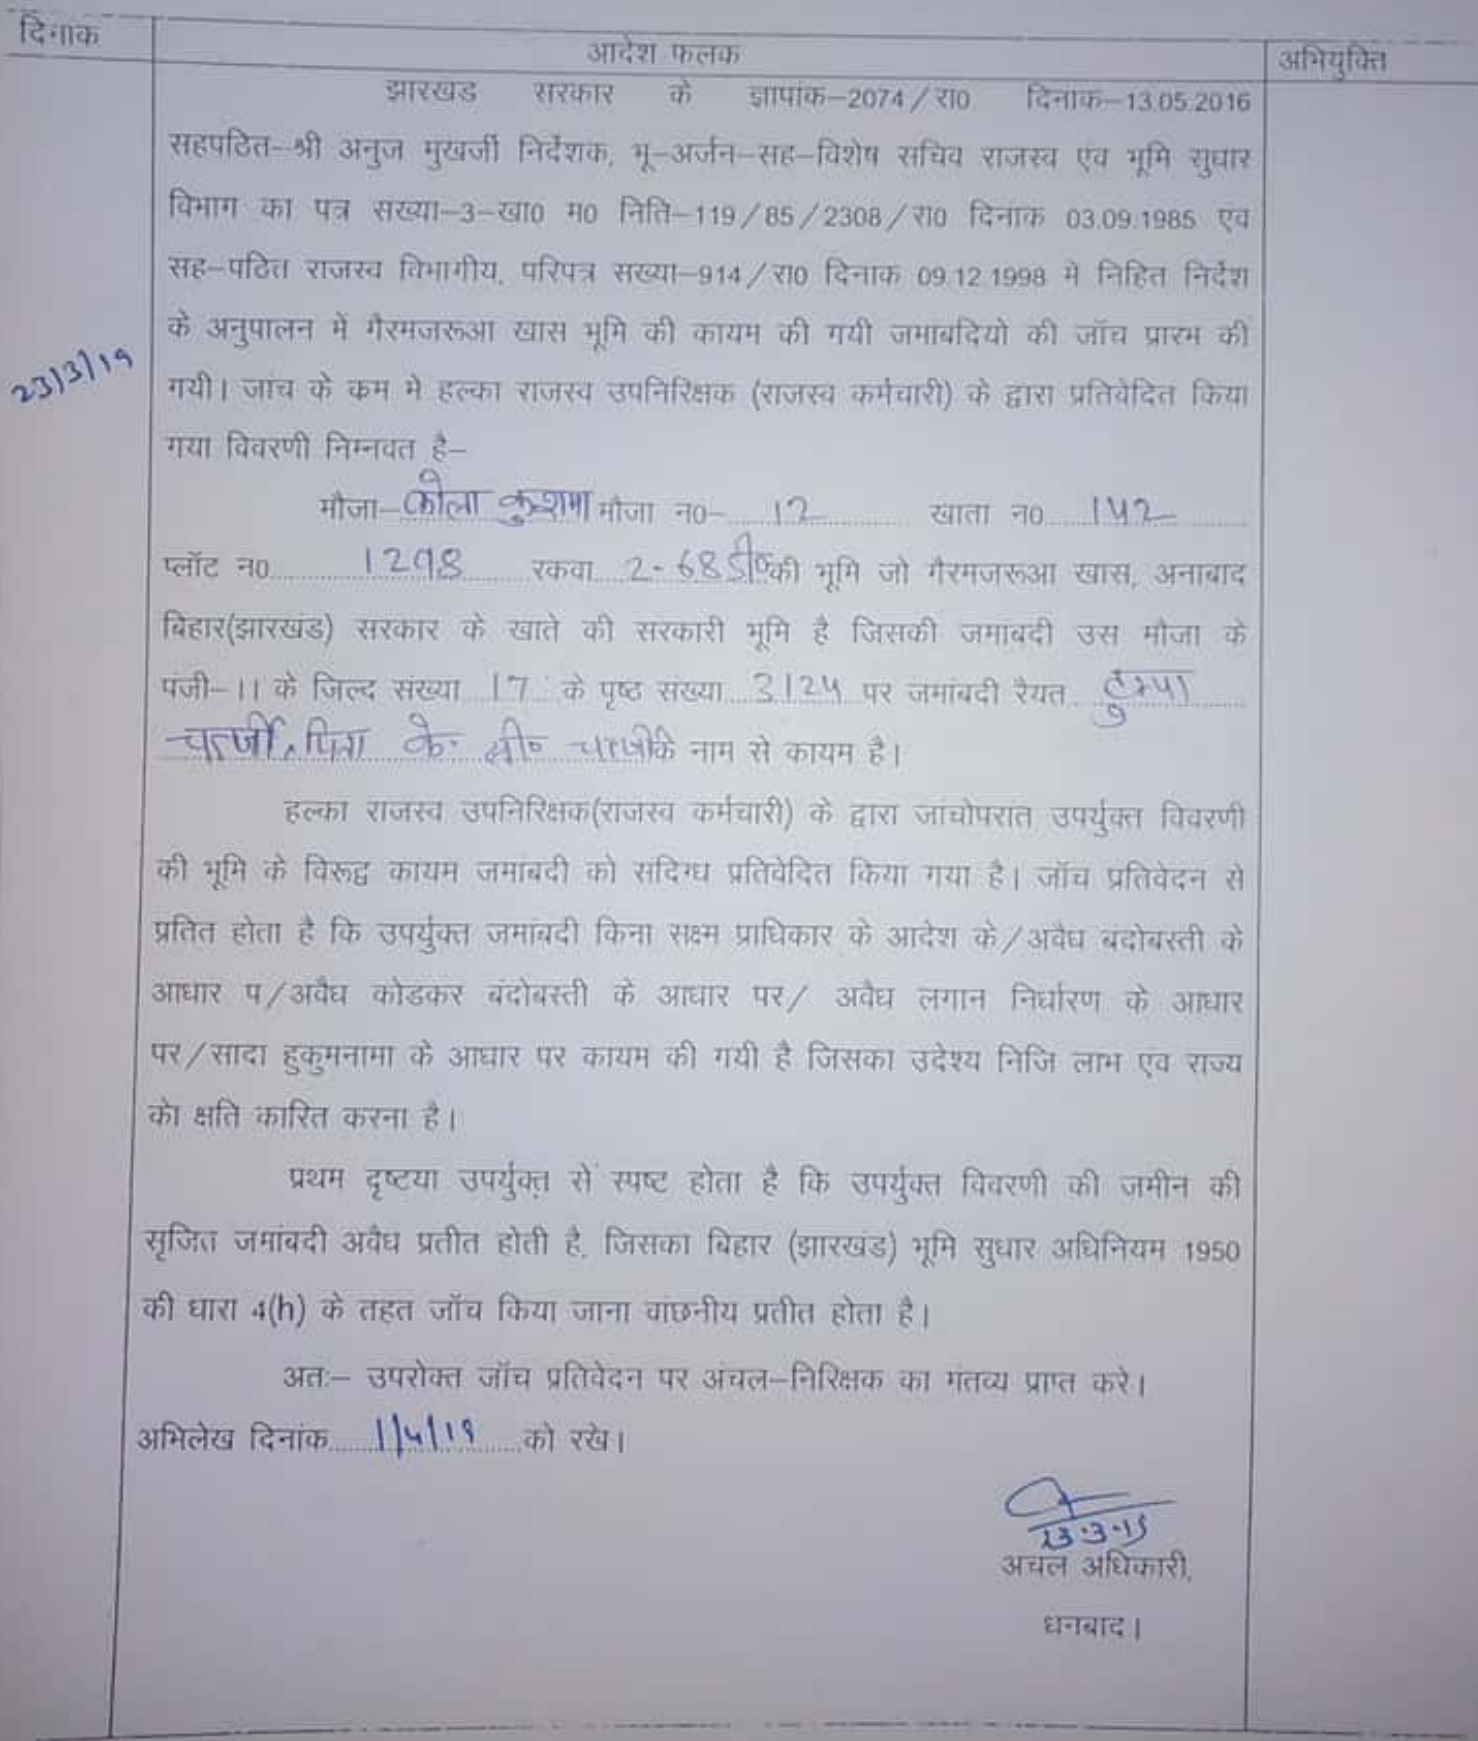 दिनाक
आदेश फलक
अभियुक्ति
झारखड सरकार के ज्ञापांक–2074/रा0 दिनाक–13.05.2016
सहपठित–श्री अनुज मुखर्जी निर्देशक, भू–अर्जन–सह–विशेष सचिव राजस्व एंव भूमि सुधार
विभाग का पत्र सख्या–3–खा0 म0 निति–119/85/2308/रा0 दिनाक 03.09.1985 एव
सह–पठित राजस्व विभागीय, परिपत्र सख्या–914/रा0 दिनाक 09.12.1998 मे निहित निर्देश
के अनुपालन में गैरमजरूआ खास भूमि की कायम की गयी जमाबदियो की जॉच प्रारभ की
23/3/19
गयी। जाच के कम मे हल्का राजस्व उपनिरिक्षक (राजस्व कर्मचारी) के द्वारा प्रतिवेदित किया
गया विवरणी निम्नवत है–
मौजा– कोला कुशमा मौजा न0– 12 खाता न0 142
प्लॉट न0 1298 रकवा 2-68 डी० की भूमि जो गैरमजरूआ खास, अनाबाद
बिहार(झारखंड) सरकार के खाते की सरकारी भूमि है जिसकी जमाबदी उस मौजा के
पंजी–11 के जिल्द संख्या 17 के पृष्ठ संख्या 3124 पर जमांबदी रैयत
चटर्जी, पिता के० सी० चटर्जी के नाम से कायम है।
हल्का राजस्व उपनिरिक्षक(राजस्व कर्मचारी) के द्वारा जांचोपरात उपर्युक्त विवरणी
की भूमि के विरूद्व कायम जमांबदी को संदिग्ध प्रतिवेदित किया गया है। जॉच प्रतिवेदन से
प्रतित होता है कि उपर्युक्त जमांबदी किना सक्ष्म प्राधिकार के आदेश के/अवैध बंदोबस्ती के
आधार प/अवैध कोडकर बंदोबस्ती के आधार पर/ अवैध लगान निर्धारण के आधार
पर/सादा हुकुमनामा के आधार पर कायम की गयी है जिसका उदेश्य निजि लाभ एंव राज्य
को क्षति कारित करना है।
प्रथम दृष्टया उपर्युक्त से स्पष्ट होता है कि उपर्युक्त विवरणी की जमीन की
सृजित जमांबदी अवैध प्रतीत होती है, जिसका बिहार (झारखंड) भूमि सुधार अधिनियम 1950
की धारा 4(h) के तहत जॉच किया जाना वांछनीय प्रतीत होता है।
अतः– उपरोक्त जॉच प्रतिवेदन पर अंचल–निरिक्षक का मंतव्य प्राप्त करे।
अभिलेख दिनांक 1/4/19 को रखे।
23.3.19
अचल अधिकारी,
धनबाद।